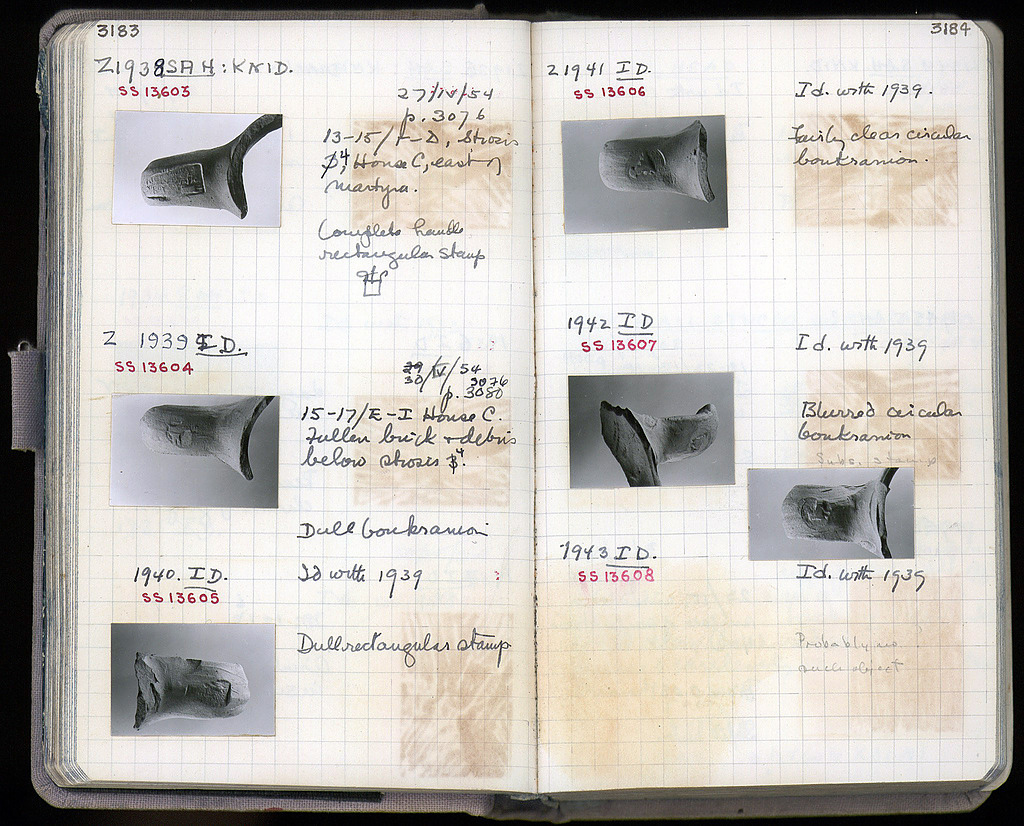 3183
Z 1938 SAH: KAID.
SS 13603
27/IV/54
p. 3076
13-15/Γ-Δ, Strosis
4, House C, east of
Martyra.
Complete handle
rectangular stamp
Z 1939 ID.
SS 13604
30/IV/54
3076
p. 3080
15-17/E-I House C.
Fallen brick + debris
below strosis 4.
Dull boukranion
1940. ID.
SS 13605
Id with 1939
Dull rectangular stamp
3184
Z 1941 ID.
SS 13606
Id. with 1939.
Fairly clear circular
boukranion.
1942 ID
SS 13607
Id. with 1939
Blurred circular
boukranion
Subs. stamp
1943 ID.
SS 13608
Id. with 1939
Probably no
such object